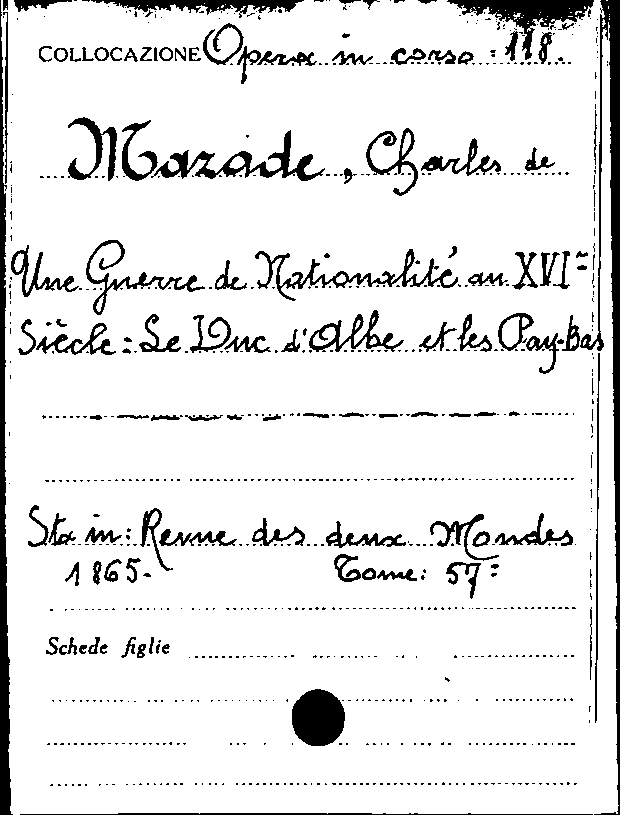 COLLOCAZIONE Opera in corso = 118.
Mazade, Charles de
Une Guerre de Nationalité au XVI=
Siècle: Le Duc d'Albe et les Pay-Bas
Sta in: Revue des deux Mondes
1865. Tome: 57=
Schede figlie